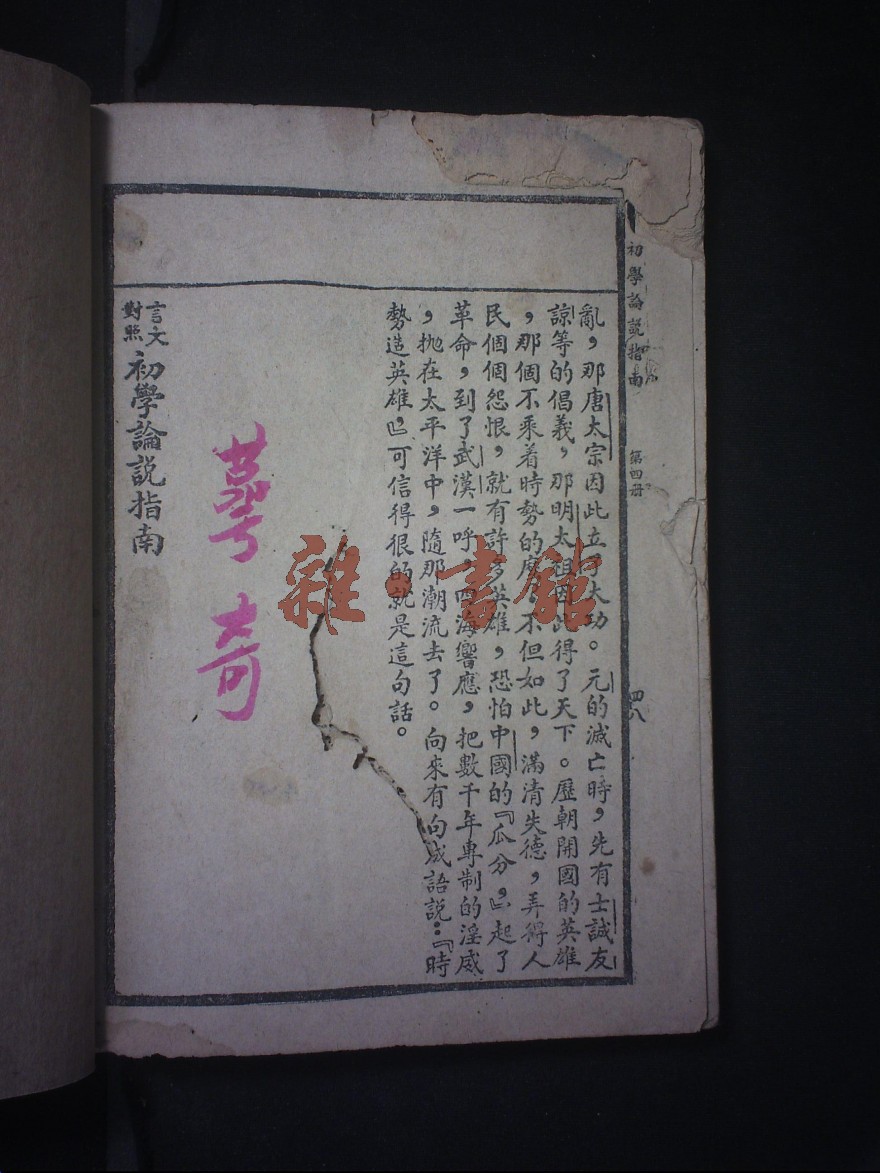 初學論說指南
第四册
四八
亂，那唐太宗因此立了大功。元的滅亡時，先有士誠友
諒等的倡義，那明太祖因此得了天下。歷朝開國的英雄
，那個不乘着時勢的麽？不但如此，滿清失德，弄得人
民個個怨恨，就有許多英雄，恐怕中國的『瓜分，』起了
革命，到了武漢一呼，四海響應，把數千年專制的淫威
，抛在太平洋中，隨那潮流去了。向來有句成語說：『時
勢造英雄，』可信得很的就是這句話。
言文對照
初學論說指南
雜·書館